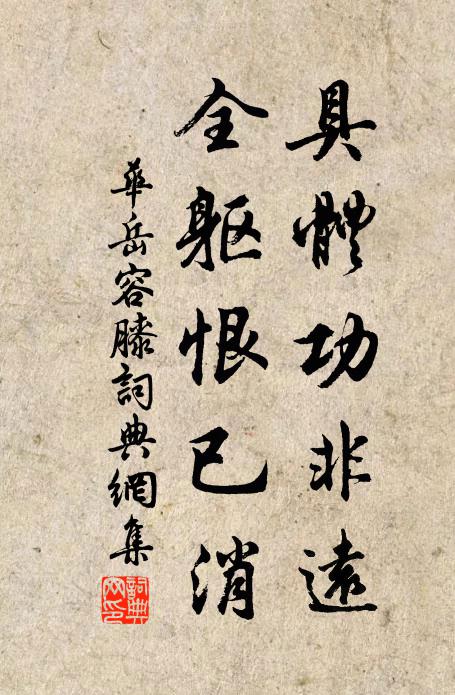 具體功非遠
全軀恨已消
華岳容膝詞典網集
詞典網印